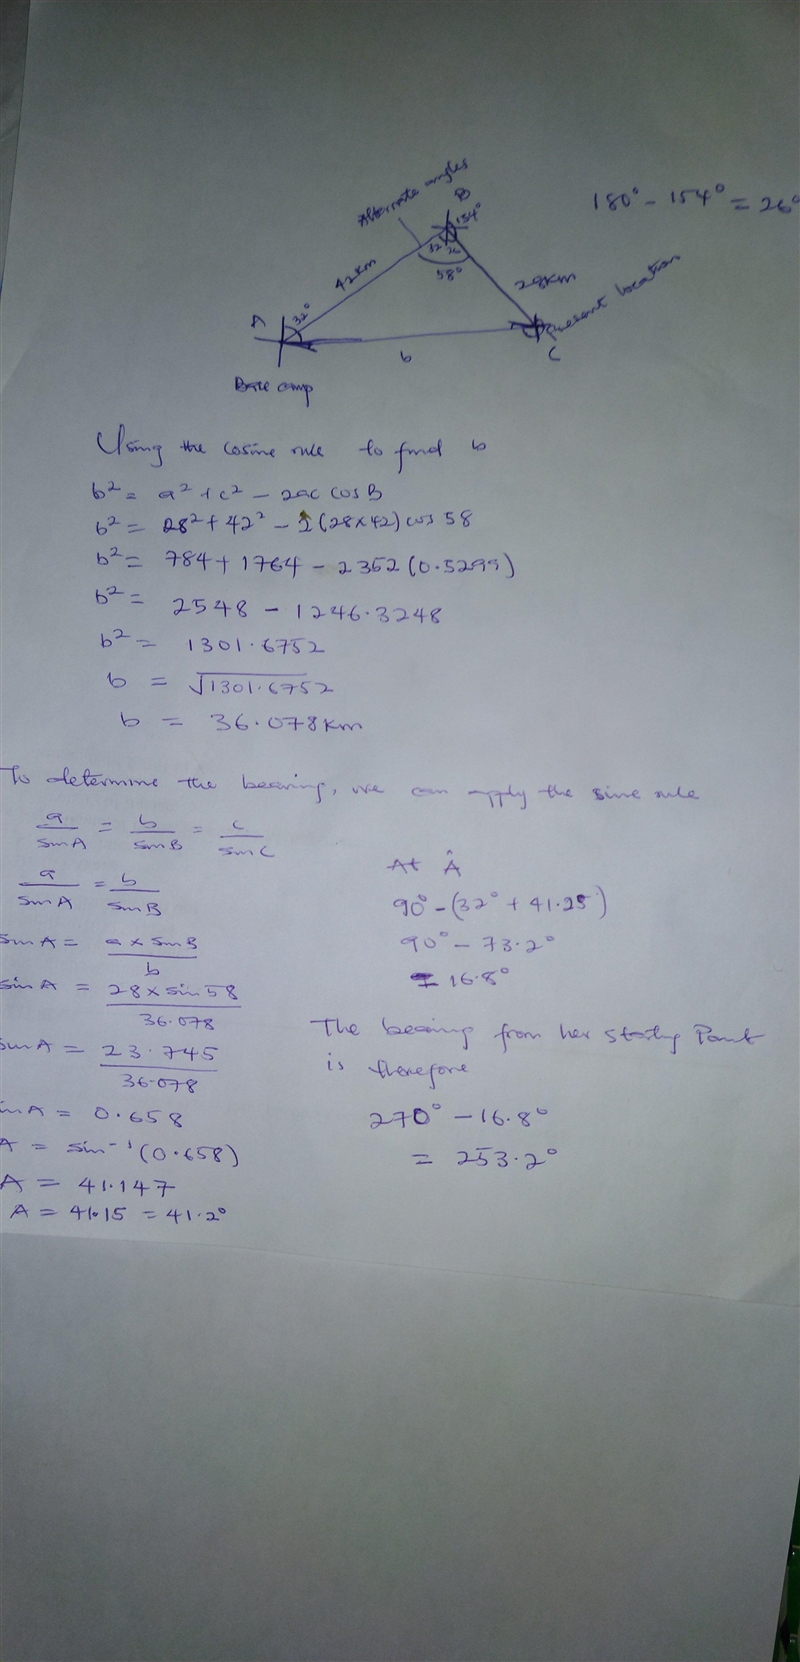 Alternate angles
B
154°
180° - 154° = 26°
32 26
58°
42km
28km
present location
A
32°
C
b
Base camp
Using the cosine rule to find b
b² = a² + c² - 2ac cosB
b² = 28² + 42² - 2(28×42) cos 58
b² = 784 + 1764 - 2352(0.5299)
b² = 2548 - 1246.3248
b² = 1301.6752
b = √1301.6752
b = 36.078km
To determine the bearing, we can apply the sine rule
a/sinA = b/sinB = c/sinC
a/sinA = b/sinB
sinA = a × sinB/b
sinA = 28×sin58/36.078
sinA = 23.745/36.078
inA = 0.658
A = sin⁻¹(0.658)
A = 41.147
A = 41.15 = 41.2°
At Â
90° - (32° + 41.25)
90° - 73.2°
= 16.8°
The bearing from her starting Point
is therefore
270° - 16.8°
= 253.2°